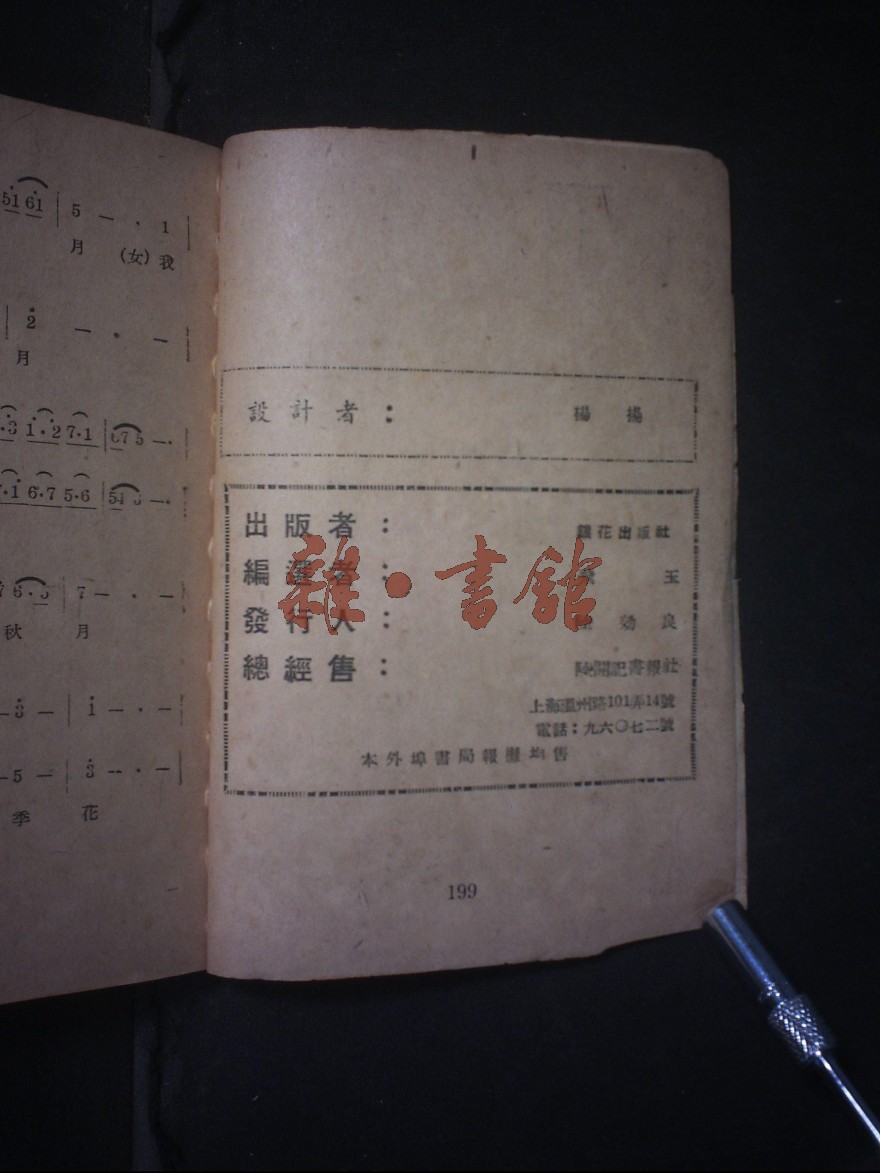 51 61 | 5 — · 1
月 (女)我
2 — · —
月
·3 1·2 7·1 | 675 — ·
7·1 6·7 5·6
6·5 | 7 — · —
秋 月
—3 — | 1 — · —
—5 — | 3 — · —
季 花
設計者： 楊揚
出版者： 銀花出版社
編選者： 玉
發行人： 効良
總經售： 開記書報社
上海溫州路101弄14號
電話：九六〇七二號
本外埠書局報攤均售
雜·書館
199